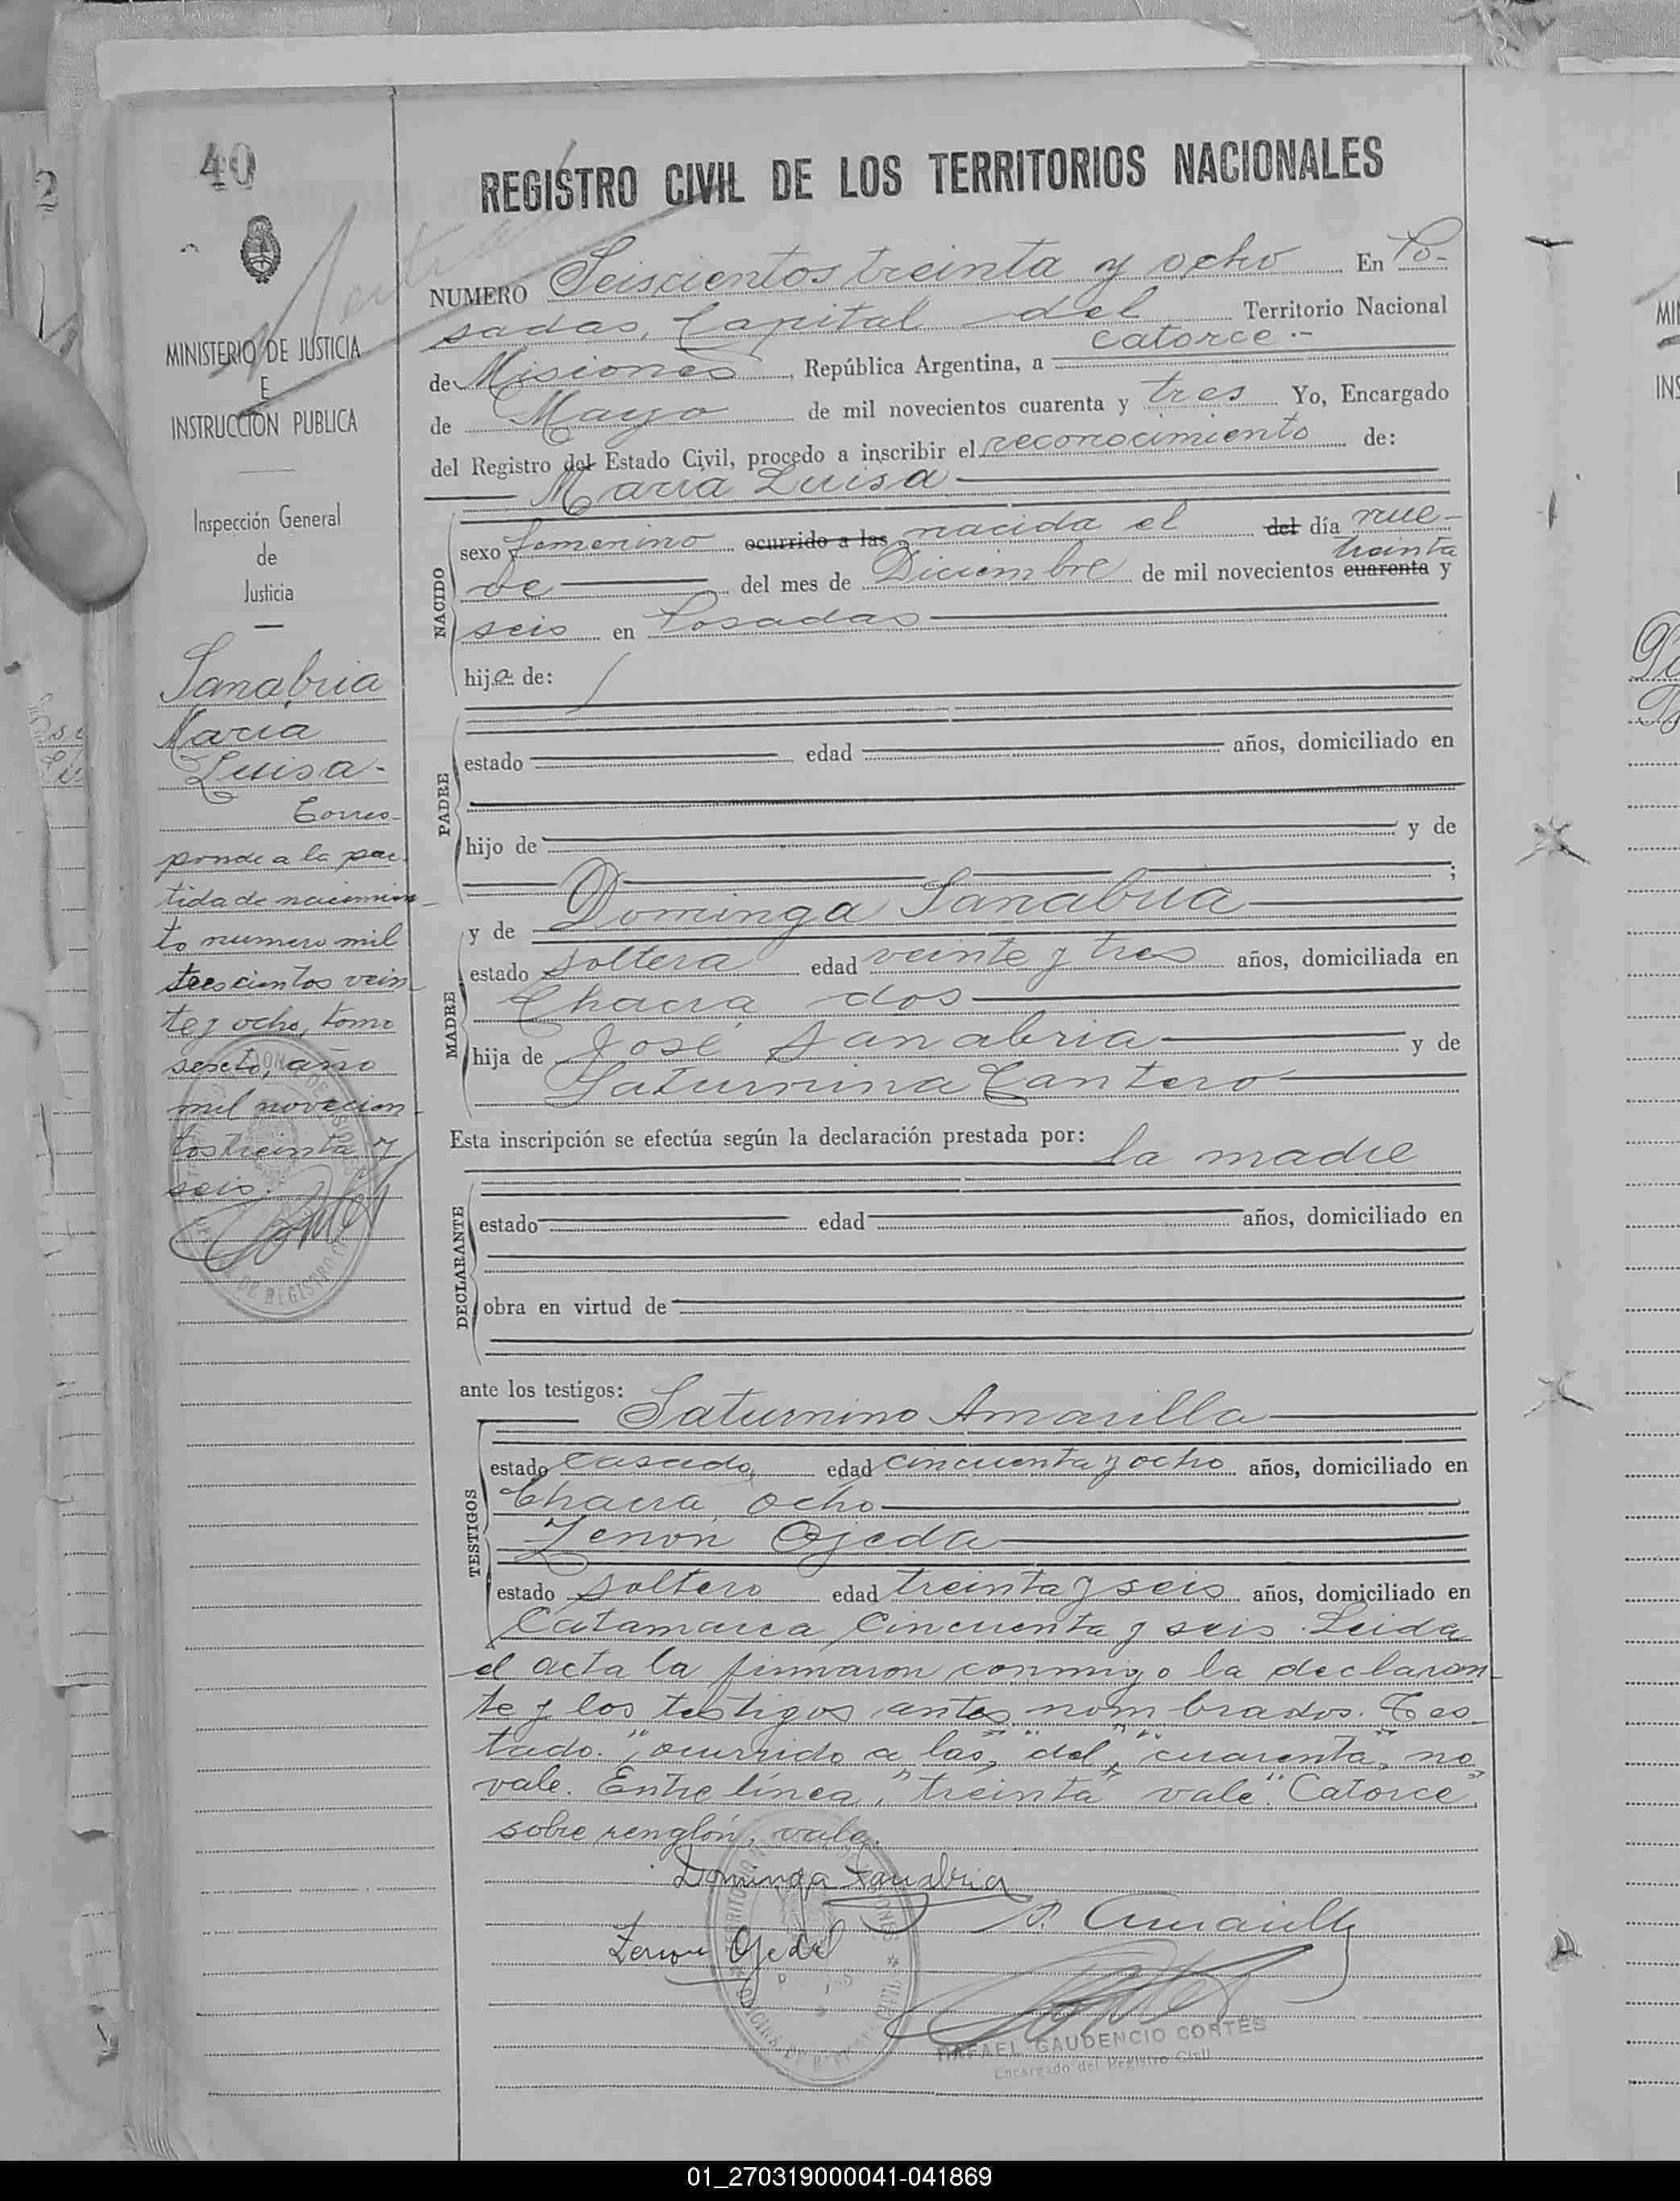 40
2
REGISTRO CIVIL DE LOS TERRITORIOS NACIONALES
NUMERO Seiscientos treinta y ocho En Po-
sadas, Capital del Territorio Nacional
catorce.-
de Misiones, República Argentina, a
de Mayo de mil novecientos cuarenta y tres Yo, Encargado
del Registro del Estado Civil, procedo a inscribir el reconocimiento de:
María Luisa
NACIDO
sexo femenino ocurrido a las nacida el del día nue-
treinta
ve del mes de Diciembre de mil novecientos cuarenta y
seis en Posadas
hija de:
PADRE
estado edad años, domiciliado en
hijo de y de
;
MADRE
y de Dominga Sanabria
estado soltera edad veinte y tres años, domiciliada en
Chacra dos
hija de José Sanabria y de
Saturnina Cantero
Esta inscripción se efectúa según la declaración prestada por:
la madre
DECLARANTE
estado edad años, domiciliado en
obra en virtud de
ante los testigos:
Saturnino Amarilla
TESTIGOS
estado casado, edad cincuenta y ocho años, domiciliado en
Chacra ocho
Zenón Ojeda
estado soltero edad treinta y seis años, domiciliado en
Catamarca cincuenta y seis. Leida
el acta la firmaron conmigo la declaran-
te y los testigos antes nombrados. Tes-
tado. "ocurrido a las", "del", "cuarenta", no
vale. Entre línea, "treinta" vale. "Catorce"
sobre renglón, vale.
Dominga Sanabria
S. Amarilla
Zenon Ojeda
RAFAEL GAUDENCIO CORTÉS
Encargado del Registro Civil
MINISTERIO DE JUSTICIA
E
INSTRUCCION PUBLICA
Inspección General
de
Justicia
Sanabria
María
Luisa.
Corres-
ponde a la par-
tida de nacimien-
to numero mil
trescientos vein-
te y ocho, tomo
sexto, año
mil novecien-
tos treinta y
seis.
MI
INS
01_270319000041-041869